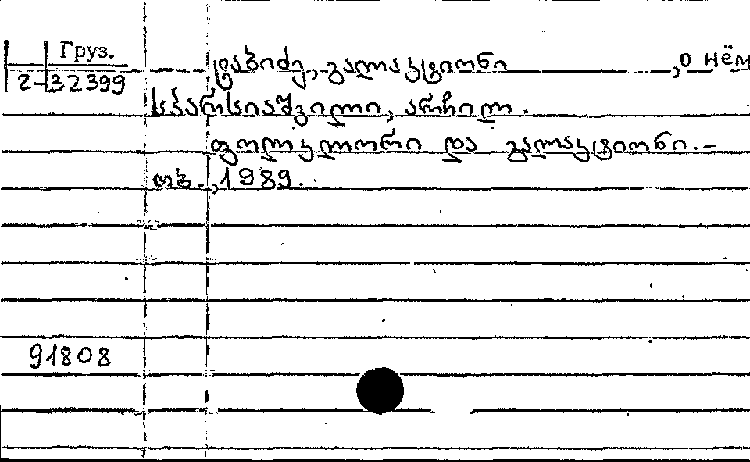 Груз.
2-32399
ტაბიძე, გალაკტიონი , о нём
სპარსიაშვილი, არჩილ.
ფოლკლორი და გალაკტიონი.–
თბ., 1989.
91808